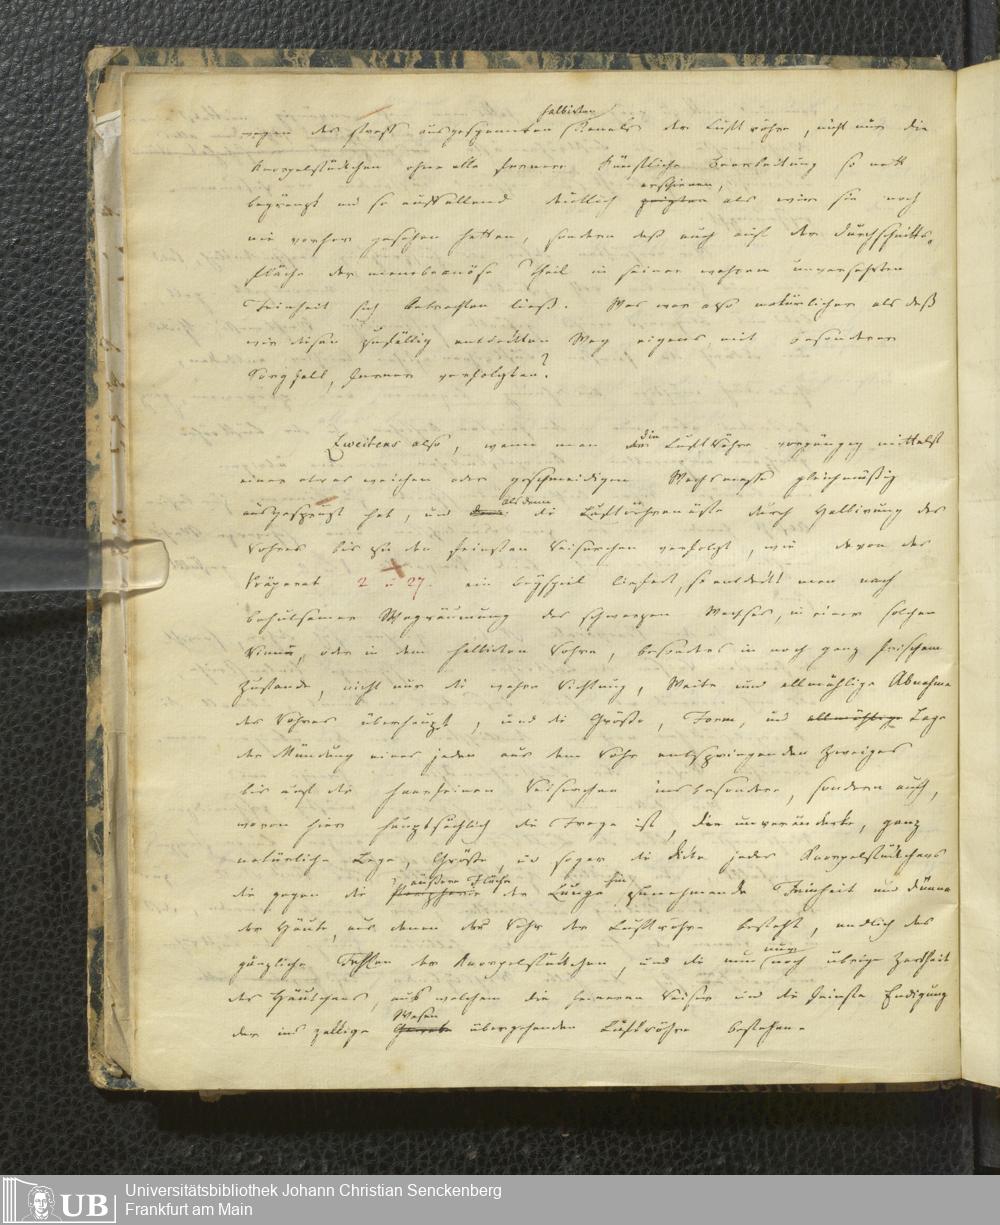 wegen der straff ausgespannten halbirten Kanals der Luftröhre, nicht nur die
Knorpelstückchen ohne alle fernere Künstliche Bearbeitung so nett
begränzt und so auffallend deutlich zeigten erschienen, als wir sie noch
nie vorher gesehen hatten, sondern daß auch auf der Durchschnitts-
fläche der membranöse Theil in seiner wahren unversehrten
Feinheit sich betrachten ließ. Was war also natürlicher als daß
wir diesen zufällig entdeckten Weg eigens mit besonderer
Sorgfalt, ferner verfolgten?
Zweitens also, wenn man die Luftröhre vorgängig mittelst
einer etwas weichen oder geschmeidigen Wachsmasse gleichmäßig
ausgesprüzt hat, und alsdenn die Luftröhrenäste durch Halbirung des
Rohres bis zu den feinsten Reiserchen verfolgt, wie davon das
Präparat 2 u 27. ein beyspiel liefert, so entdeckt man nach
behutsamer Wegräumung des schwarzen Wachses, in einer solchen
Rinne, oder in dem halbirten Rohre, besonders in noch ganz frischem
Zustande, nicht nur die wahre Richtung, Weite und allmählige Abnahme
des Rohres überhaupt, und die Größe, Form, und allmählige Lage
der Mündung eines jeden aus dem Rohr entspringenden Zweiges
bis auf die haarfeinen Reiserchen insbesondere, sondern auch,
wovon hier hauptsächlich die Frage ist, die unveränderte, ganz
natürliche Lage, Größe, und sogar die Dicke jedes Knorpelstückchens
die gegen die Peripherie äußere Fläche der Lunge hin zunehmende Feinheit und Dünne
der Häute, aus denen das Rohr der Luftröhre besteht, endlich das
gänzliche Fehlen der Knorpelstückchen, und die nun nur noch übrige Zartheit
des Häutchens, aus welchem die feineren Reiser und die feinste Endigung
der ins zellige Gewebe Wesen übergehenden Luftröhre bestehen.
Universitätsbibliothek Johann Christian Senckenberg
Frankfurt am Main
UB